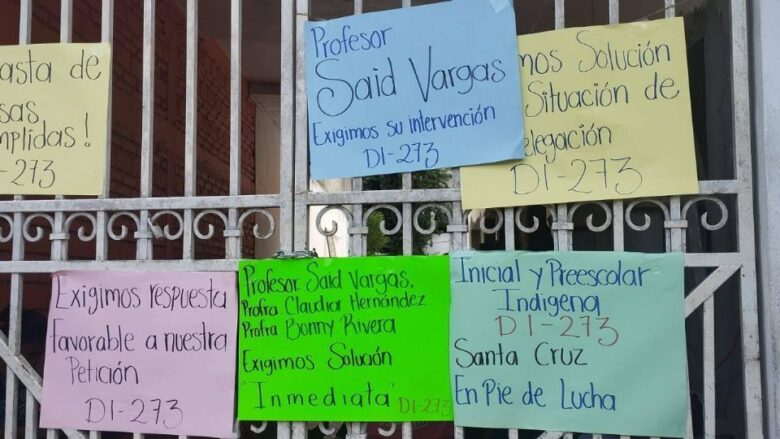 asta de
sas
mplidas!
DI-273
Profesor
Said Vargas
Exigimos su intervención
DI-273
mos Solución
Situación de
elegación
DI-273
Exigimos respuesta
favorable a nuestra
Petición
DI-273
Profesor. Said Vargas.
Profra Claudia Hernández
Profra Bonny Rivera
Exigimos Solución
"Inmediata" DI-273
Inicial y Preescolar
Indigena
DI-273
Santa Cruz
En Pie de Lucha